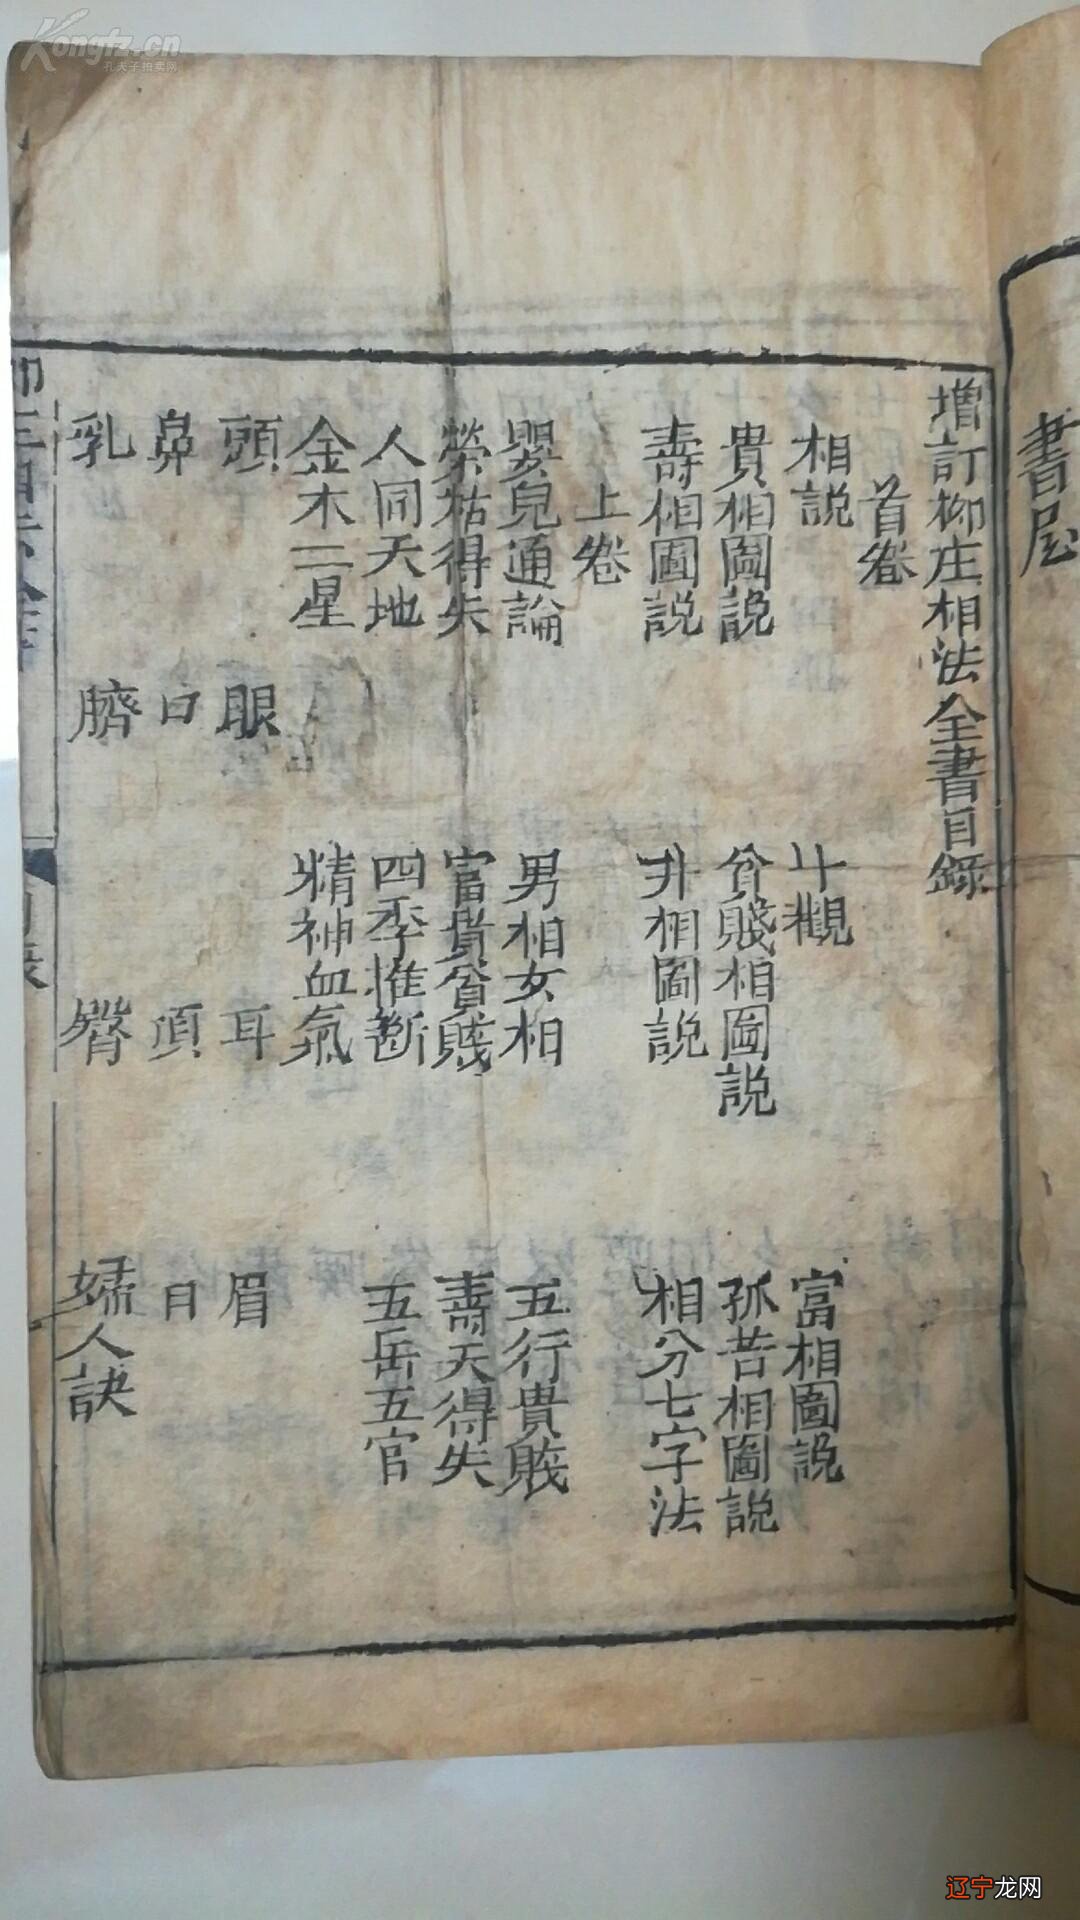 Kongfz.cn
孔夫子拍卖网
書屋
增訂柳庄相法全書目錄
首卷
相説 十觀 富相圖説
貴相圖説 貧賤相圖説 孤苦相圖説
壽相圖説 升相圖説 相分七字法
上卷
嬰兒通論 男相女相 五行貴賤
榮枯得失 富貴貧賤 壽夭得失
人同天地 四季推斷 五岳五官
金木二星 精神血氣
頭 眼 耳 眉
鼻 口 項 日
乳 臍 臀 婦人訣
辽宁龙网